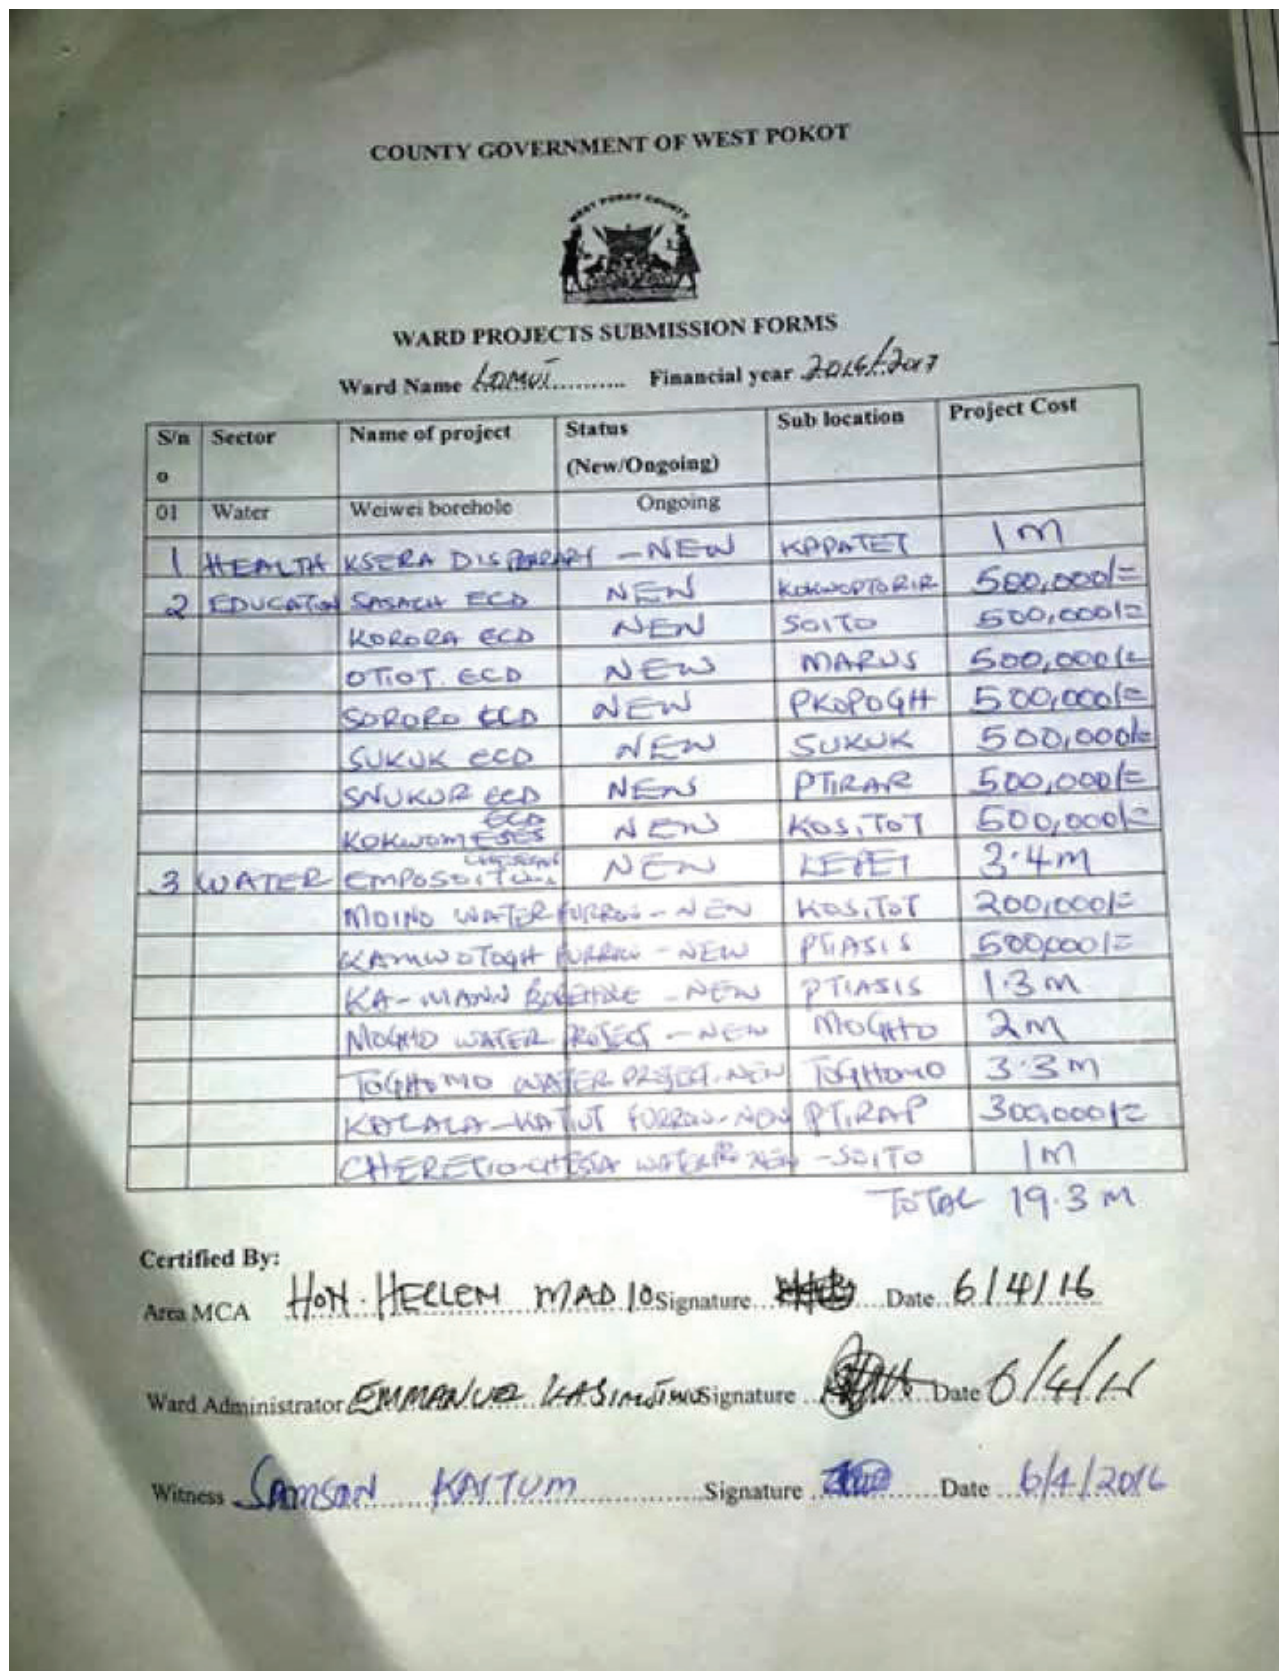 COUNTY GOVERNMENT OF WEST POKOT
WEST POKOT COUNTY
WARD PROJECTS SUBMISSION FORMS
Ward Name LOMUT........... Financial year 2016/2017
S/no Sector Name of project Status (New/Ongoing) Sub location Project Cost
01 Water Weiwei borehole Ongoing
1 HEALTH KSERA DISPENSARY - NEW KAPATET 1M
2 EDUCATION SASACH ECD NEW KOKWOPTORIR 500,000/=
KORORA ECD NEW SOITO 500,000/=
OTIOT ECD NEW MARUS 500,000/=
SORORO ECD NEW PKOPOGH 500,000/=
SUKUK ECD NEW SUKUK 500,000/=
SNUKUR ECD NEW PTIRAR 500,000/=
KOKWOMESES ECD NEW KOSITOT 500,000/=
3 WATER NEW LEPEI 3.4M
MOINO WATER FURROW - NEW KOSITOT 200,000/=
KAMWOTOGH FURROW - NEW PTIASIS 500,000/=
KA-MANN BOREHOLE - NEW PTIASIS 1.3M
MOGHO WATER PROJECT - NEW MOGHO 2M
TOGHOMO WATER PROJECT - NEW TOGHOMO 3.3M
KALALA-KATUT FURROW - NEW PTIRAP 300,000/=
WATER NEW - SOITO 1M
TOTAL 19.3M
Certified By:
Area MCA HON. HELLEN MADIO Signature Date 6/4/16
Ward Administrator EMMANUEL Signature Date 6/4/16
Witness SAMSON KAITUM Signature Date 6/4/2016